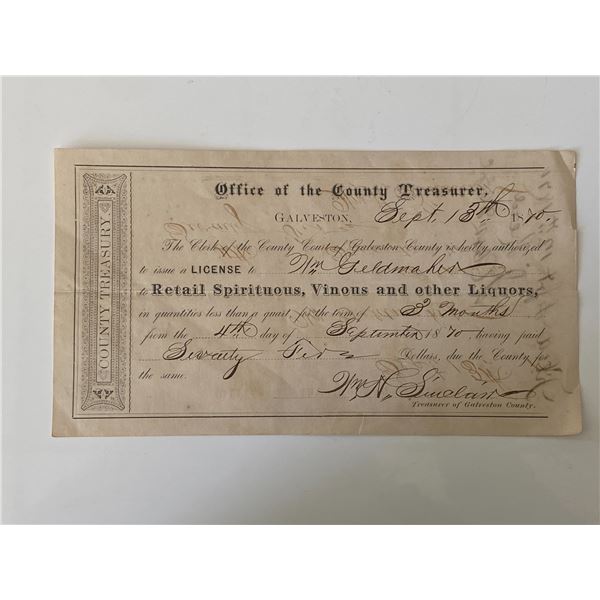 COUNTY TREASURY.
Office of the County Treasurer,
GALVESTON, Sept. 13th 1870.
The Clerk of the County Court of Galveston County is hereby authorized
to issue a LICENSE to Wm Geldmaher
to Retail Spirituous, Vinous and other Liquors,
in quantities less than a quart, for the term of 3 Months
from the 4th day of September 1870, having paid
Seventy Five Dollars, due the County for
the same.
Wm H. Sinclair
Treasurer of Galveston County.